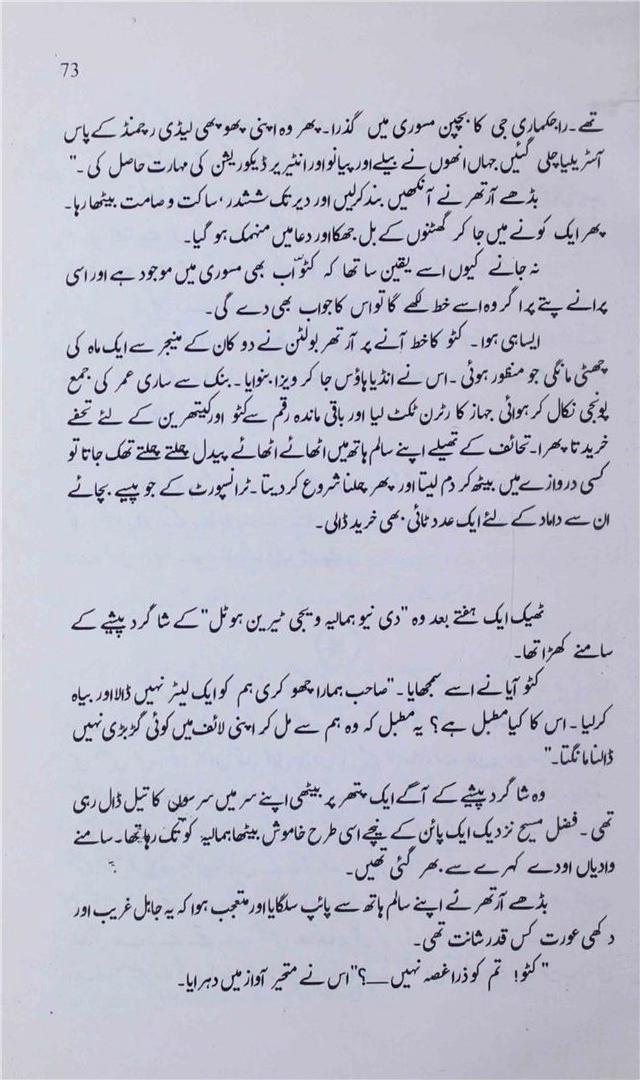 73
تھے۔ راجکماری جی کا بچپن مسوری میں گذرا۔ پھر وہ اپنی پھوپھی لیڈی رچمنڈ کے پاس
آسٹریلیا چلی گئیں جہاں انھوں نے بیلے اور پیانو اور انٹیریر ڈیکوریشن کی مہارت حاصل کی۔"
بڈھے آرتھر نے آنکھیں بند کرلیں اور دیر تک ششدر، ساکت و صامت بیٹھا رہا۔
پھر ایک کونے میں جا کر گھٹنوں کے بل جھکا اور دعا میں منہمک ہو گیا۔
نہ جانے کیوں اسے یقین سا تھا کہ کٹو اب بھی مسوری میں موجود ہے اور اسی
پرانے پتے پر اگر وہ اسے خط لکھے گا تو اس کا جواب بھی دے گی۔
ایسا ہی ہوا۔ کٹو کا خط آنے پر آرتھر بولٹن نے دوکان کے منیجر سے ایک ماہ کی
چھٹی مانگی جو منظور ہوئی۔ اس نے انڈیا ہاؤس جا کر ویزا بنوایا۔ بنک سے ساری عمر کی جمع
پونجی نکال کر ہوائی جہاز کا رٹرن ٹکٹ لیا اور باقی ماندہ رقم سے کٹو اور کیتھرین کے لئے تحفے
خریدتا پھرا۔ تحائف کے تھیلے اپنے سالم ہاتھ میں اٹھائے اٹھائے پیدل چلتے چلتے تھک جاتا تو
کسی دروازے میں بیٹھ کر دم لیتا اور پھر چلنا شروع کر دیتا۔ ٹرانسپورٹ کے جو پیسے بچائے
ان سے داماد کے لئے ایک عدد ٹائی بھی خرید ڈالی۔
ٹھیک ایک ہفتے بعد وہ "دی نیو ہمالیہ ویجی ٹیرین ہوٹل" کے شاگرد پیشے کے
سامنے کھڑا تھا۔
کٹو آیا نے اسے سمجھایا۔ "صاحب ہمارا چھوکری ہم کو ایک لیٹر نہیں ڈالا اور بیاہ
کرلیا۔ اس کا کیا مطبل ہے؟ یہ مطبل کہ وہ ہم سے مل کر اپنی لائف میں کوئی گڑبڑی نہیں
ڈالنا مانگتا۔"
وہ شاگرد پیشے کے آگے ایک پتھر پر بیٹھی اپنے سر میں سرسوں کا تیل ڈال رہی
تھی۔ فضل مسیح نزدیک ایک پائن کے نیچے اسی طرح خاموش بیٹھا ہمالیہ کو تک رہا تھا۔ سامنے
وادیاں اودے کہرے سے بھر گئی تھیں۔
بڈھے آرتھر نے اپنے سالم ہاتھ سے پائپ سلگایا اور متعجب ہوا کہ یہ جاہل غریب اور
دکھی عورت کس قدر شانت تھی۔
"کٹو! تم کو ذرا غصہ نہیں ـــ؟" اس نے متحیر آواز میں دہرایا۔